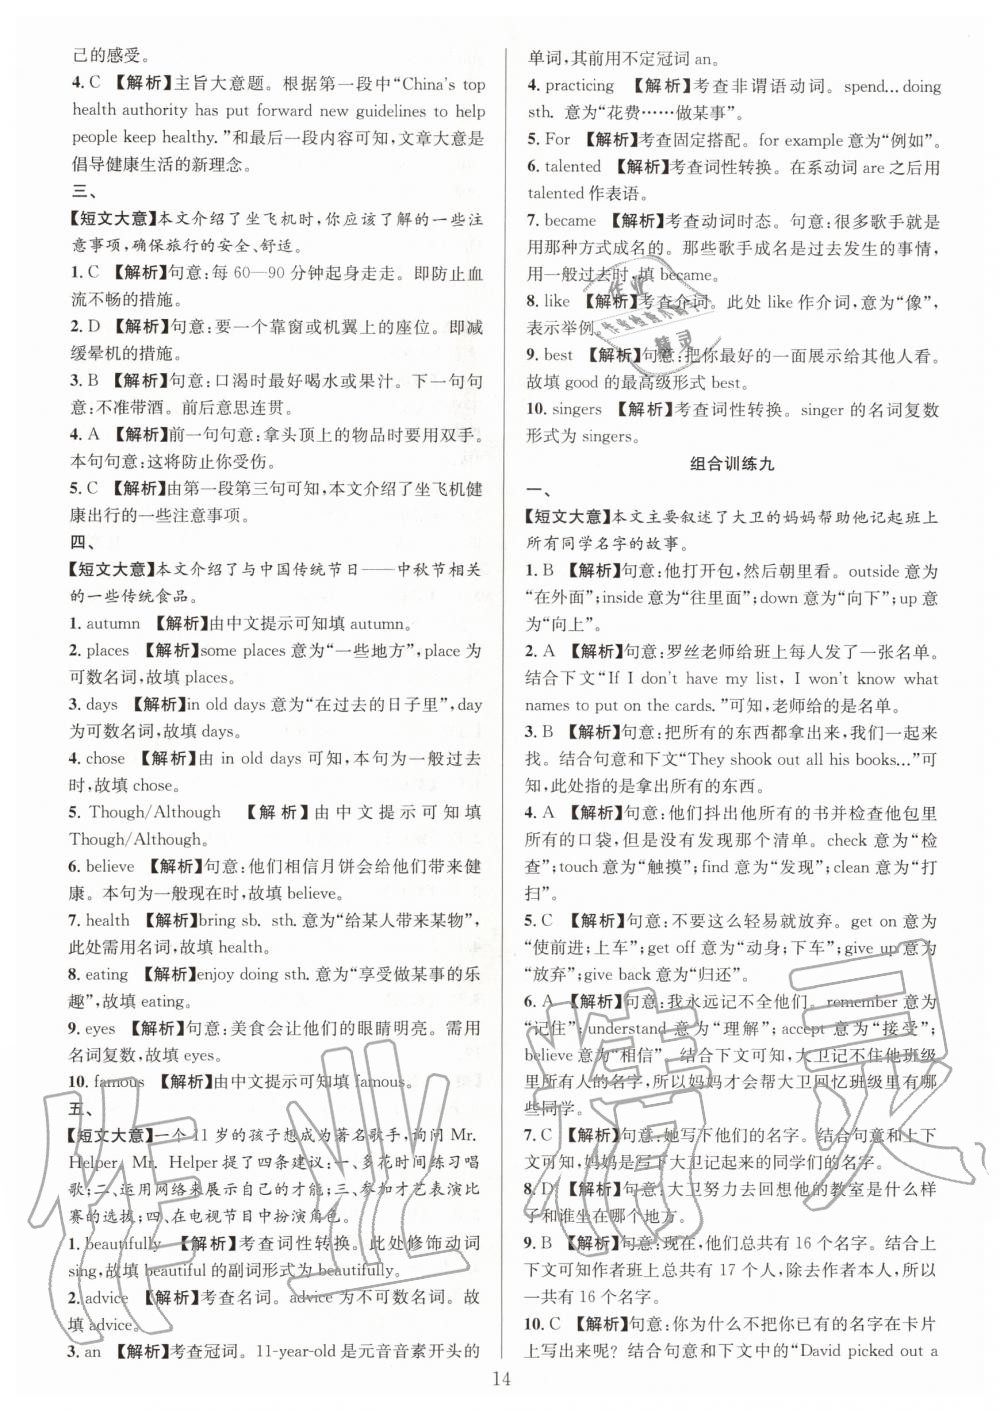 己的感受。
4. C 【解析】主旨大意题。根据第一段中“China's top
health authority has put forward new guidelines to help
people keep healthy.”和最后一段内容可知,文章大意是
倡导健康生活的新理念。
三、
【短文大意】本文介绍了坐飞机时,你应该了解的一些注
意事项,确保旅行的安全、舒适。
1. C 【解析】句意:每 60—90 分钟起身走走。即防止血
流不畅的措施。
2. D 【解析】句意:要一个靠窗或机翼上的座位。即减
缓晕机的措施。
3. B 【解析】句意:口渴时最好喝水或果汁。下一句句
意:不准带酒。前后意思连贯。
4. A 【解析】前一句句意:拿头顶上的物品时要用双手。
本句句意:这将防止你受伤。
5. C 【解析】由第一段第三句可知,本文介绍了坐飞机健
康出行的一些注意事项。
四、
【短文大意】本文介绍了与中国传统节日——中秋节相关
的一些传统食品。
1. autumn 【解析】由中文提示可知填 autumn。
2. places 【解析】some places 意为“一些地方”,place 为
可数名词,故填 places。
3. days 【解析】in old days 意为“在过去的日子里”,day
为可数名词,故填 days。
4. chose 【解析】由 in old days 可知,本句为一般过去
时,故填 chose。
5. Though/Although 【解析】由中文提示可知填
Though/Although。
6. believe 【解析】句意:他们相信月饼会给他们带来健
康。本句为一般现在时,故填 believe。
7. health 【解析】bring sb. sth. 意为“给某人带来某物”,
此处需用名词,故填 health。
8. eating 【解析】enjoy doing sth. 意为“享受做某事的乐
趣”,故填 eating。
9. eyes 【解析】句意:美食会让他们的眼睛明亮。需用
名词复数,故填 eyes。
10. famous 【解析】由中文提示可知填 famous。
五、
【短文大意】一个 11 岁的孩子想成为著名歌手,询问 Mr.
Helper, Mr. Helper 提了四条建议:一、多花时间练习唱
歌;二、运用网络来展示自己的才能;三、参加才艺表演比
赛的选拔;四、在电视节目中扮演角色。
1. beautifully 【解析】考查词性转换。此处修饰动词
sing,故填 beautiful 的副词形式为 beautifully。
2. advice 【解析】考查名词。advice 为不可数名词。故
填 advice。
3. an 【解析】考查冠词。11-year-old 是元音音素开头的
单词,其前用不定冠词 an。
4. practicing 【解析】考查非谓语动词。spend... doing
sth. 意为“花费……做某事”。
5. For 【解析】考查固定搭配。for example 意为“例如”。
6. talented 【解析】考查词性转换。在系动词 are 之后用
talented 作表语。
7. became 【解析】考查动词时态。句意:很多歌手就是
用那种方式成名的。那些歌手成名是过去发生的事情,
用一般过去时,填 became。
8. like 【解析】考查介词。此处 like 作介词,意为“像”,
表示举例。
9. best 【解析】句意:把你最好的一面展示给其他人看。
故填 good 的最高级形式 best。
10. singers 【解析】考查词性转换。singer 的名词复数
形式为 singers。
组合训练九
一、
【短文大意】本文主要叙述了大卫的妈妈帮助他记起班上
所有同学名字的故事。
1. B 【解析】句意:他打开包,然后朝里看。outside 意为
“在外面”;inside 意为“往里面”;down 意为“向下”;up 意
为“向上”。
2. A 【解析】句意:罗丝老师给班上每人发了一张名单。
结合下文“If I don't have my list, I won't know what
names to put on the cards.”可知,老师给的是名单。
3. B 【解析】句意:把所有的东西都拿出来,我们一起来
找。结合句意和下文“They shook out all his books...”可
知,此处指的是拿出所有的东西。
4. A 【解析】句意:他们抖出他所有的书并检查他包里
所有的口袋,但是没有发现那个清单。check 意为“检
查”;touch 意为“触摸”;find 意为“发现”;clean 意为“打
扫”。
5. C 【解析】句意:不要这么轻易就放弃。get on 意为
“使前进;上车”;get off 意为“动身;下车”;give up 意为
“放弃”;give back 意为“归还”。
6. A 【解析】句意:我永远记不全他们。remember 意为
“记住”;understand 意为“理解”;accept 意为“接受”;
believe 意为“相信”。结合下文可知,大卫记不住他班级
里所有人的名字,所以妈妈才会帮大卫回忆班级里有哪
些同学。
7. C 【解析】句意:她写下他们的名字。结合句意和上下
文可知,妈妈是写下大卫记起来的同学们的名字。
8. D 【解析】句意:大卫努力去回想他的教室是什么样
子和谁坐在哪个地方。
9. B 【解析】句意:现在,他们总共有 16 个名字。结合上
下文可知作者班上总共有 17 个人,除去作者本人,所以
一共有 16 个名字。
10. C 【解析】句意:你为什么不把你已有的名字在卡片
上写出来呢? 结合句意和下文中的“David picked out a
14
作业
作业检查小帮手
精灵
作业精灵